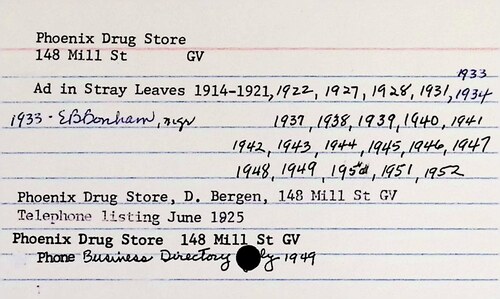 Phoenix Drug Store
148 Mill St GV
1933
Ad in Stray Leaves 1914-1921, 1922, 1927, 1928, 1931, 1934
1933 - E.B. Bonham, mgr 1937, 1938, 1939, 1940, 1941
1942, 1943, 1944, 1945, 1946, 1947
1948, 1949, 1950, 1951, 1952
Phoenix Drug Store, D. Bergen, 148 Mill St GV
Telephone listing June 1925
Phoenix Drug Store 148 Mill St GV
Phone Business Directory 1949